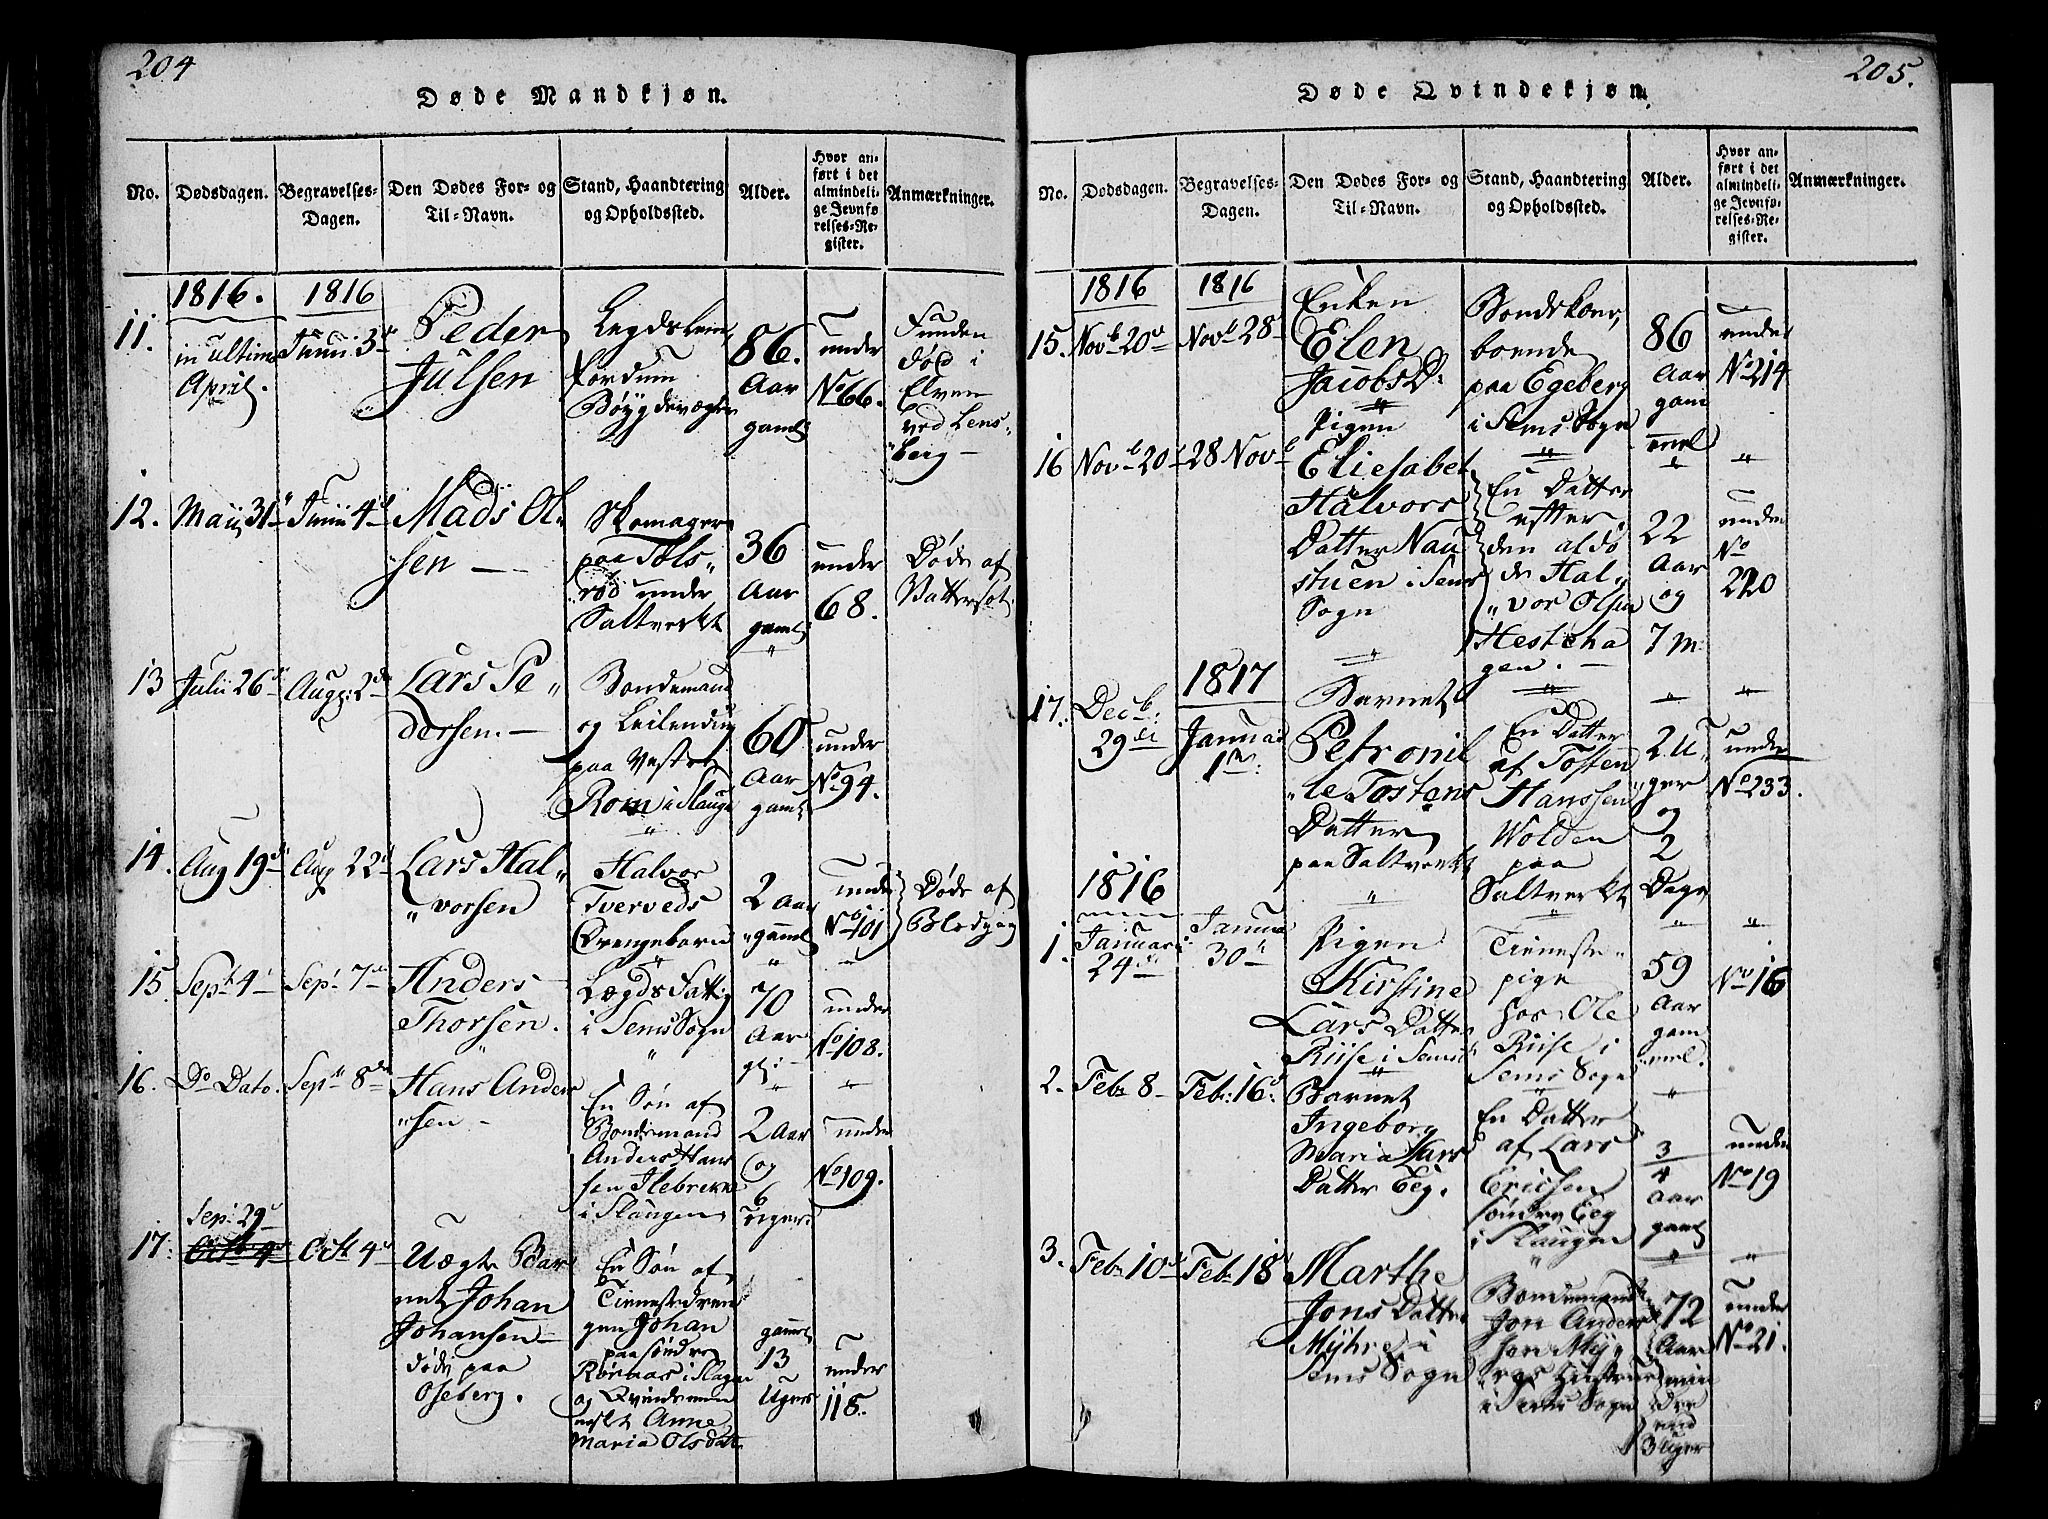 204
Døde Mandkjøn.
No.
Dødsdagen.
Begravelses-
Dagen.
Den Dødes For- og
Til-Navn.
Stand, Haandtering
og Opholdssted.
Alder.
Hvor an-
ført i det
almindeli-
ge Jevnfø-
relses-Re-
gister.
Anmærkninger.
1816.
1816
11.
in ultimo
April.
Junii 3
Peder
Julsen
Legdslem,
fordum
Bøygdevægter
86.
Aar
gaml
under
No 66.
Funden
død i
Elven
ved Lens„
„berg
12.
Maji 31
Junii 4
Mads Ol„
sen
Skomager
paa Tols„
rød under
Saltverkt
36
Aar
gaml
under
68.
Døde af
Vattersot.
13
Julii 26
Aug: 2
Lars Pe„
dersen.
Bondemand
og Leilending
paa Vestre
Rom i Slaugn
60
Aar
gaml
under
No 94.
14.
Aug 19
Aug 22
Lars Hal„
„vorsen
Halvor
Tverveds
Drengebarn
2 Aar
„gaml
under
No 101
Døde af
Blodgag
15.
Sept 4
Sept 7
Anders
Thorsen.
Lægds Fattig
i Sems Sogn
70
Aar
gl:
under
No 108.
16.
Do Dato.
Sept 8
Hans Anders
„sen
En Søn af
Bondemand
Anders Hans
sen Ilebrekke
i Slaugen
2 Aar
og
6
Uger.
under
No 109.
17.
Sep: 29
Octb 4
Octb 4
Uægte Bar
net Johan
Johansen
døde paa
Oseberg.
En Søn af
Tienestedren
gen Johan
paa søndre
Rørnas i Slagen
og Qvindemen
nesket Anne
Maria Olsdatt
gaml
13
Uger
under
118.
205.
Døde Qvindekjøn.
No.
Dødsdagen.
Begravelses-
Dagen.
Den Dødes For- og
Til-Navn.
Stand, Haandtering
og Opholdssted.
Alder.
Hvor an-
ført i det
almindeli-
ge Jevnfø-
relses-Re-
gister.
Anmærkninger.
1816
1816
15.
Novb 20
Novb 28
Enken
Elen
Jacobs D:
Bondekone,
boende
paa Egeberg
i Sems Sogn
86
Aar
gam
mel
under
No 214
16
Novb 20
28 Novb
Pigen
Eliesabet
Halvors
Datter Nau
stuen i Sems
Sogn
En Datter
efter
den afdø
de Hal„
„vor Olsen
Hesteha
gen.
22
Aar
og
7 m:
under
No
220
17.
Decb:
29
1817
Januar
1
Barnet
Petronil
„le Tostens
Datter
paa Saltverkt
En Datter
af Tosten
Hanssen
Wolden
paa
Saltverkt
2 U„
„ger
og
2
Dage
under
No 233.
1816
1.
Januari
24
Janua
30
Pigen
Kirstine
Lars Datter
Riise i Sems
Tieneste„
pige
hos Ole
Riise i
Sems Sogn
59
Aar
gam
mel.
No 16
2.
Feb: 8
Feb: 16
Barnet
Ingeborg
Maria Lars
Datter Eeg.
En Datter
af Lars
Ericsen
søndre Eeg
i Slaugen
3
4
Aar
gaml
under
No 19
3.
Feb: 10
Feb: 18
Marthe
Jons Datter
Myhre i
Sems Sogn
Bondemand
Jon Anders
sen My„
„res Hustrue
i Sems Sogn
72
Aar
min
dre
end
3 Uger
under
No 21.